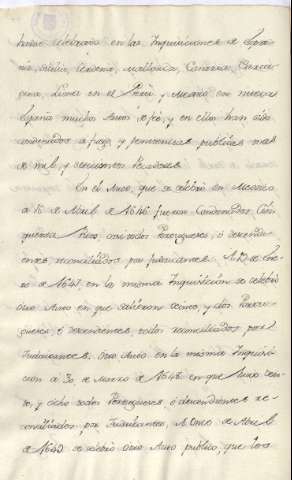 havido celebrado en las Inquisiciones de Espa
ña, Sicilia, Cerdeña, Mallorca, Canaria, Cartag
ena, Lima en el Perú y Mexico en nueva
España muchos Autos de fe, y en ellos han sido
condenados a fuego, y penitencias publicas mas
de mil, y doscientos Reos.
En el Auto, que se celebró en Mexico
a 16 de Abril de 1646 fueron Condenados Cin
quenta Reos, casi todos Portugueses, ó descendien
tes, reconciliados por judaizantes. A 23 de Ene
ro de 1647 en la misma Inquisición se celebró
otro Auto en que salieron veinte, y dos Portu
gueses, ó descendientes, todos reconciliados por
Judaizantes. Otro Auto en la misma Inquisi
cion a 30 de Marzo de 1648 en que huvo
y ocho todos Portugueses, ó descendientes re
conciliados, por Judaizantes. A Once de Abril
de 1649 se celebró otro Auto público, que